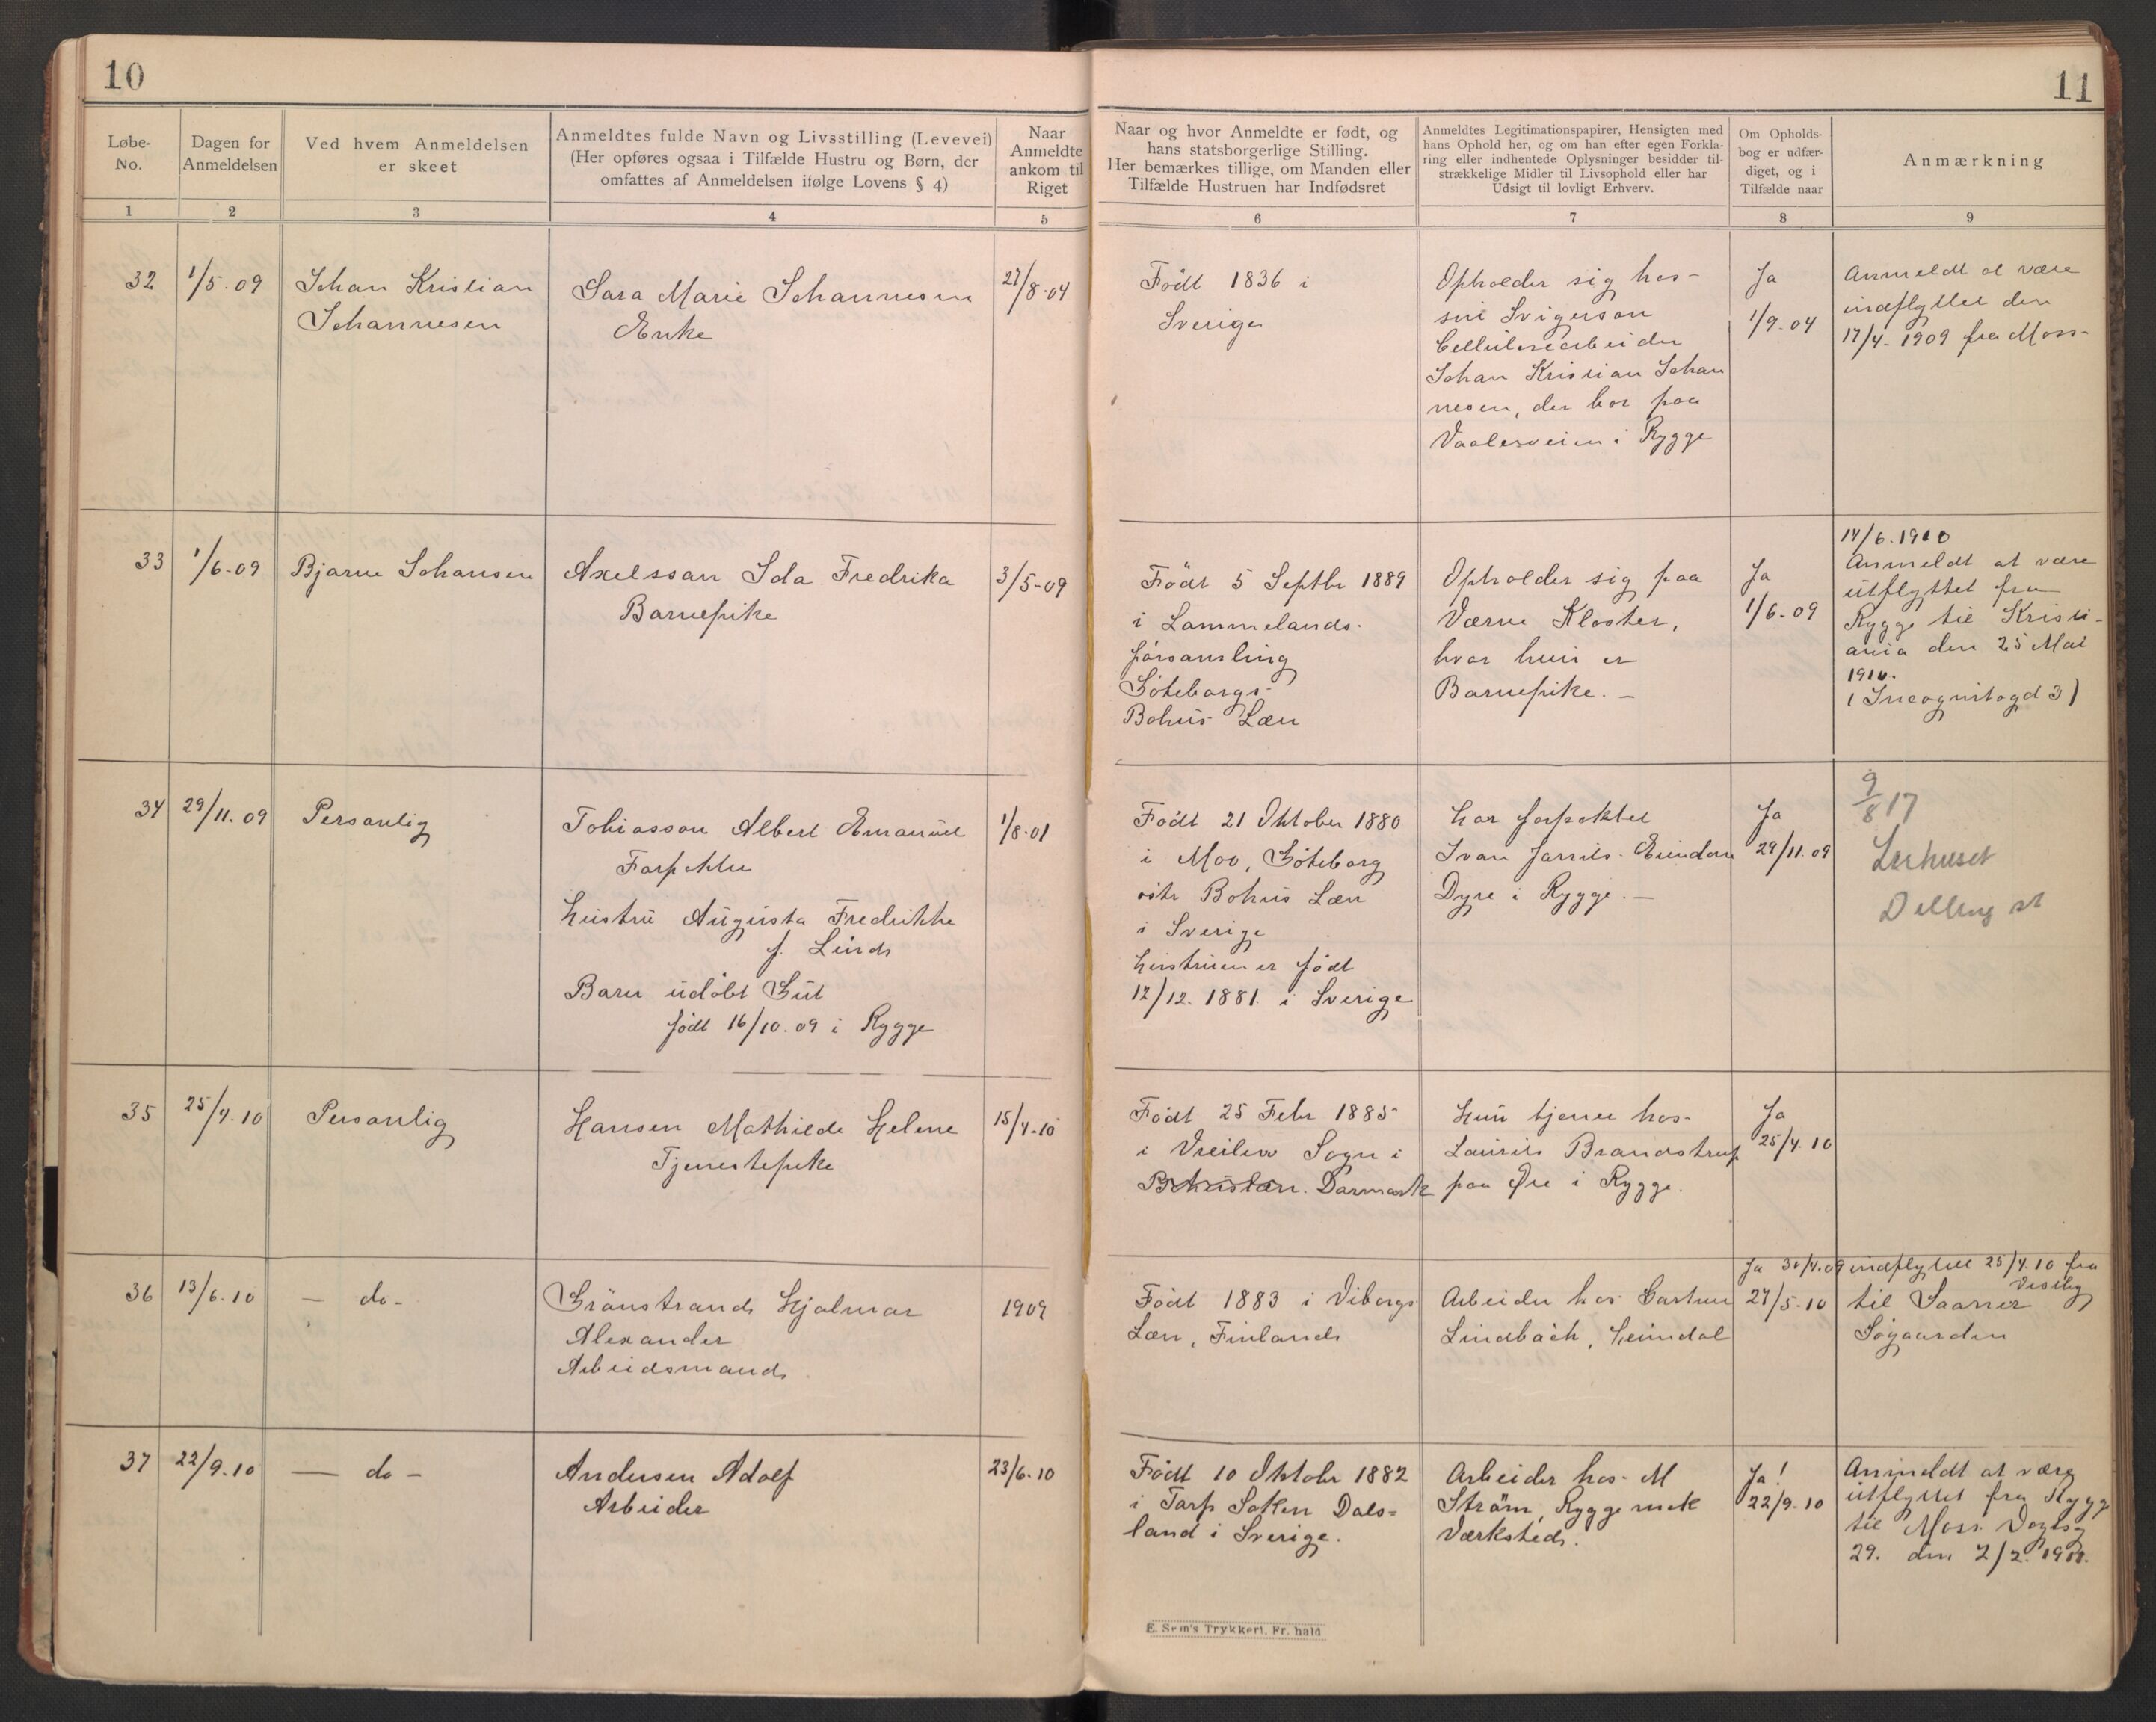 10
11
Løbe-
No.
Dagen for
Anmeldelsen
Ved hvem Anmeldelsen
er skeet
Anmeldtes fulde Navn og Livsstilling (Levevei)
(Her opføres ogsaa i Tilfælde Hustru og Børn, der
omfattes af Anmeldelsen ifølge Lovens § 4)
Naar
Anmeldte
ankom til
Riget
Naar og hvor Anmeldte er født, og
hans statsborgerlige Stilling.
Her bemærkes tillige, om Manden eller
Tilfælde Hustruen har Indfødsret
Anmeldtes Legitimationspapirer, Hensigten med
hans Ophold her, og om han efter egen Forkla-
ring eller indhentede Oplysninger besidder til-
strækkelige Midler til Livsophold eller har
Udsigt til lovligt Erhverv.
Om Opholds-
bog er udfær-
diget, og i
Tilfælde naar
Anmærkning
1
2
3
4
5
6
7
8
9
32
1/5-09
Johan Kristian
Johannesen
Sara Marie Johannesen
Enke
27/8-04
Født 1836 i
Sverige
Opholder sig hos
sin Svigersøn
Cellulosearbeider
Johan Kristian Johan
nesen, der bor paa
Vaalerveien i Rygge
Ja
1/9-04
Anmeldt at være
indflyttet den
17/4-1909 fra Moss-
33
1/6-09
Bjarne Johansen
Axelsson Ida Fredrika
Barnepike
3/5-09
Født 5 Septbr 1889
i Lommelands-
församling
Göteborgs-
Bohus Læn
Opholder sig paa
Værne Kloster,
hvor hun er
Barnepike. -
Ja
1/6-09
14/6.1910
Anmeldt at være
utflyttet fra
Rygge til Kristi-
ania den 25 Mai
1910.
(Incognitogd 3)
34
29/11.09
Personlig
Tobiasson Albert Emanuel
Forpakter
Hustru Augusta Fredrikke
f. Lund
Barn udøbt Gut
født 16/10.09 i Rygge
1/8-01
Født 21 Oktober 1880
i Moo, Göteborg
och Bohus Læn
i Sverige
Hustruen er født
12/12.1881. i Sverige
Har forpaktet
Ivar Eiendom
Dyre i Rygge. -
Ja
29/11.09
9/8 17
Lerhuset
Dilling st
35
25/4.10
Personlig
Hansen Mathilde Helene
Tjenestepike
15/4-10
Født 25 Febr 1885
i Vreilev Sogn i
Bohuslæn. Danmark
Hun tjener hos
Laurits Brandstrup
paa Øre i Rygge.
Ja
25/4.10
36
13/6.10
- do -
Grönstrand Hjalmar
Alexander
Arbeidsmand
1909
Født 1883 i Viborgs
Læn, Finland
Arbeider hos Gartner
Lindbäck, Heimdal
Ja 30/4.09
27/5-10
indflyttet 25/4.10 fra
Visiby
til Saaner
Søgaarden
37
22/9.10
- do -
Andersen Adolf
Arbeider
23/6.10
Født 10 Oktobr 1882
i Tarp Soken Dals-
land i Sverige.
Arbeider hos M
Ström, Rygge mek
Værksted.
Ja!
22/9-10
Anmeldt at være
utflyttet fra Rygge
til Moss
29. den 2/2. 1911.
E. Sem's Trykkeri, Fr.hald